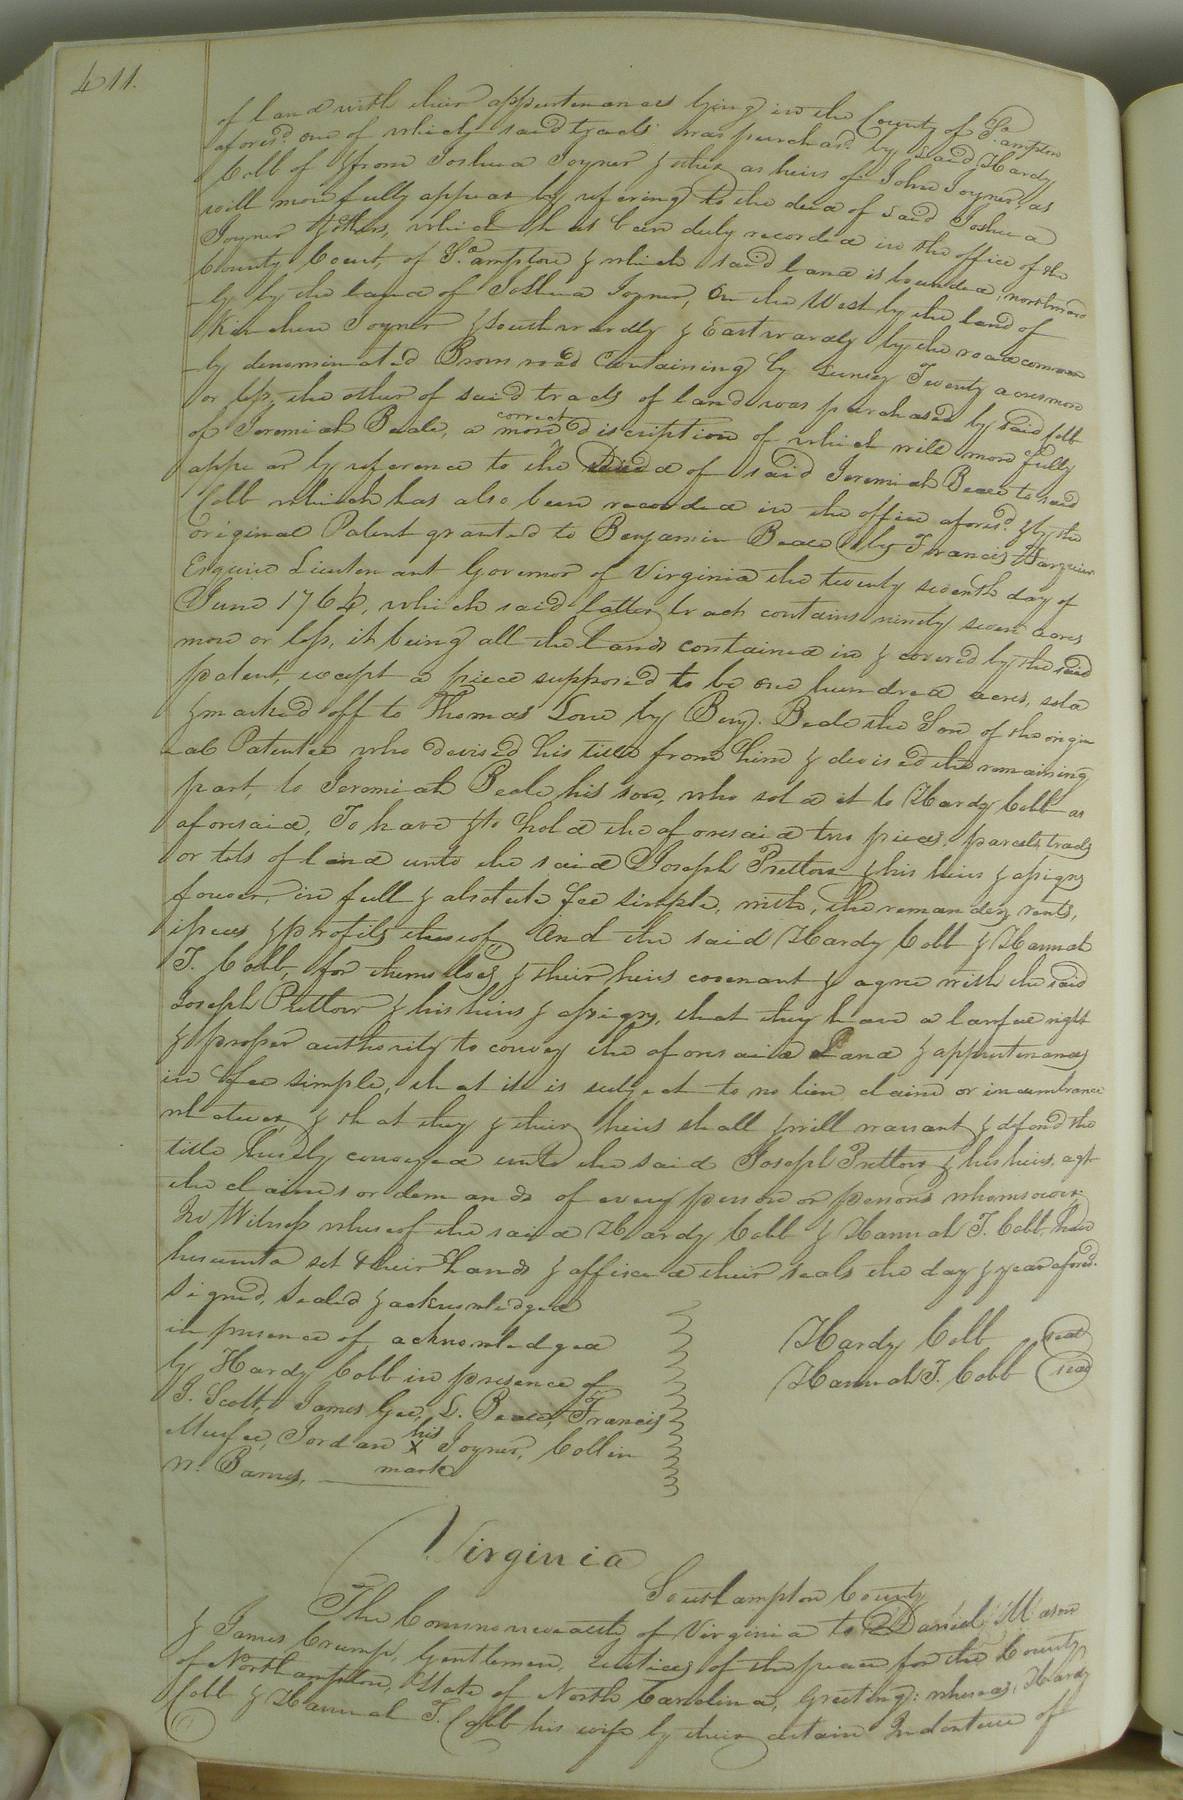 411.
of land with their appurtenances lying in the County of S.ampton
afores.d one of which said tracts was purchas.d by said Hardy
Cobb of & from Joshua Joyner & others as heirs of John Joyner, as
will more fully appear by refering to the deed of said Joshua
Joyner & others, which has been duly recorded in the office of the
County Court, of S.ampton & which said land is bounded, northward
-ly by the land of Joshua Joyner, On the West by the land of
Kinchen Joyner & Southwardly & Eastwardly by the road common
-ly denominated Broom road Containing by survey Twenty acres more
or less, the other of said tracts of land was purchased by said Cobb
of Jeremiah Beale, a more correct discription of which will more fully
appear by reference to the Deed of said Jeremiah Beale to said
Cobb which has also been recorded in the office afores.d & by the
original Patent granted to Benjamin Beale by Francis Farquier
Esquire Lieutenant Governor of Virginia the twenty seventh day of
June 1764, which said latter tract contains ninety seven acres
more or less, it being all the lands contained in & covered by the said
patent, except a piece supposed to be one hundred acres, sold
& marked off to Thomas Love by Benj. Beale the Son of the origin
-al Patentee who devised his title from him & devised the remaining
part, to Jeremiah Beale his son, who sold it to Hardy Cobb as
aforesaid, To have & to hold the aforesaid two pieces, parcels, tracts
or lots of land unto the said Joseph Pretlow & his heirs & assigns
forever, in full & absolute fee simple, with, the remainders, rents,
issues & profits thereof, And the said Hardy Cobb & Hannah
T. Cobb, for themselves & their heirs covenant & agree with the said
Joseph Pretlow & his heirs & assigns, that they have a lawful right
& proper authority to convey the aforesaid Land & appurtenances
in fee simple, that it is subject to no lien claim or incumbrance
whatever & that they & their heirs shall & will warrant & defend the
title hereby conveyed unto the said Joseph Pretlow & his heirs, agt
the claims or demands of every person or persons whomsoever
In Witness whereof the said Hardy Cobb & Hannah T. Cobb, have
hereunto set their hands & affixed their seals the day & year afores.d
Signed, Sealed & acknowledged
in presence of, acknowledged
by Hardy Cobb in presence of
J. Scott, James Gee, L. Beale, Francis
Murfee, Jordan his X mark Joyner, Collin
W. Barnes,
Hardy Cobb seal
Hannah T. Cobb seal
Virginia
Southampton County
The Commonwealth of Virginia to Daniel Mason
& James Crump, Gentlemen, Justices of the peace for the County
of Northampton, State of North Carolina, Greeting: whereas, Hardy
Cobb & Hannah T. Cobb his wife by their certain Indenture of